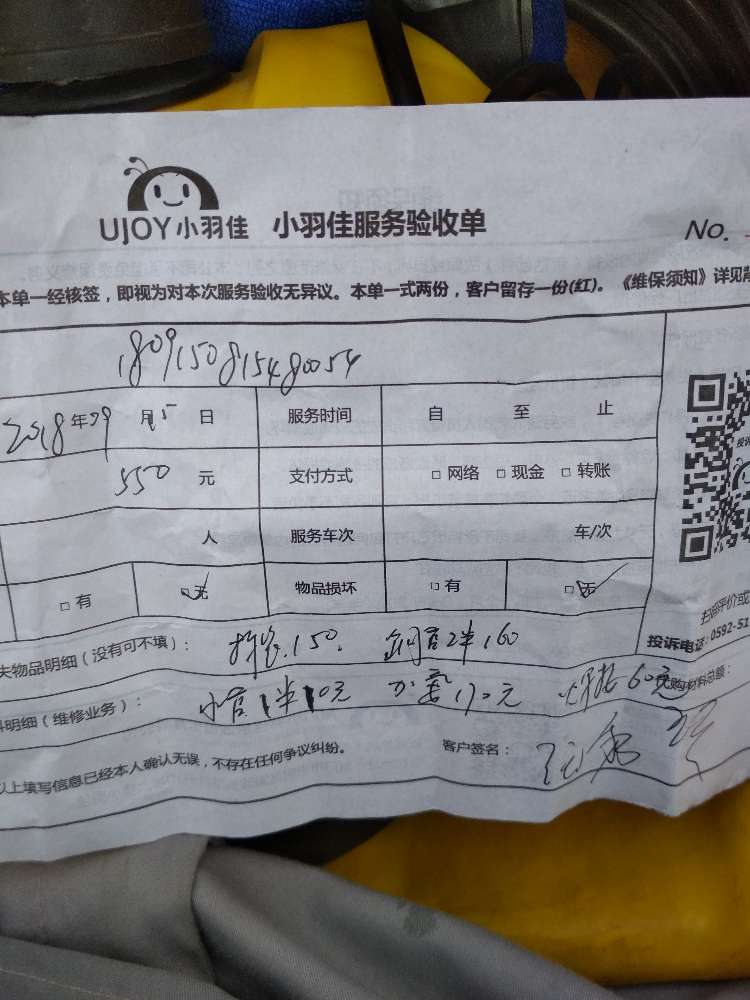 UJOY小羽佳 小羽佳服务验收单
No.
本单一经核签，即视为对本次服务验收无异议。本单一式两份，客户留存一份(红)。《维保须知》详见
1809150815480054
2018年09月15日 服务时间 自 至 止
550元 支付方式 □网络 □现金 □转账
人 服务车次 车/次
□有 □无 物品损坏 □有 □无
扫码评价或
投诉电话：0592-51
失物品明细（没有可不填）： 拆装150. 铜管2米160
料明细（维修业务）： 小管1米10元 加氟170元 焊接60元 购材料总额：
以上填写信息已经本人确认无误，不存在任何争议纠纷。 客户签名：